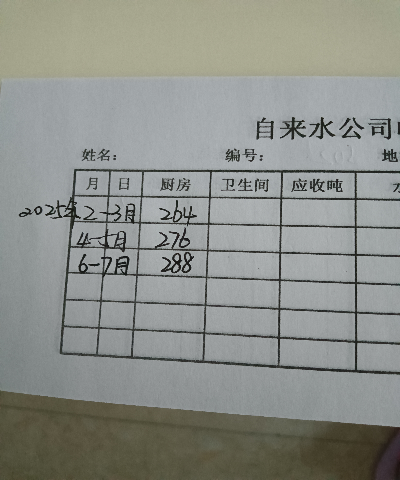 自来水公司
姓名： 编号： 地
月 日 厨房 卫生间 应收吨 水
2025年 2-3月 264
4-5月 276
6-7月 288